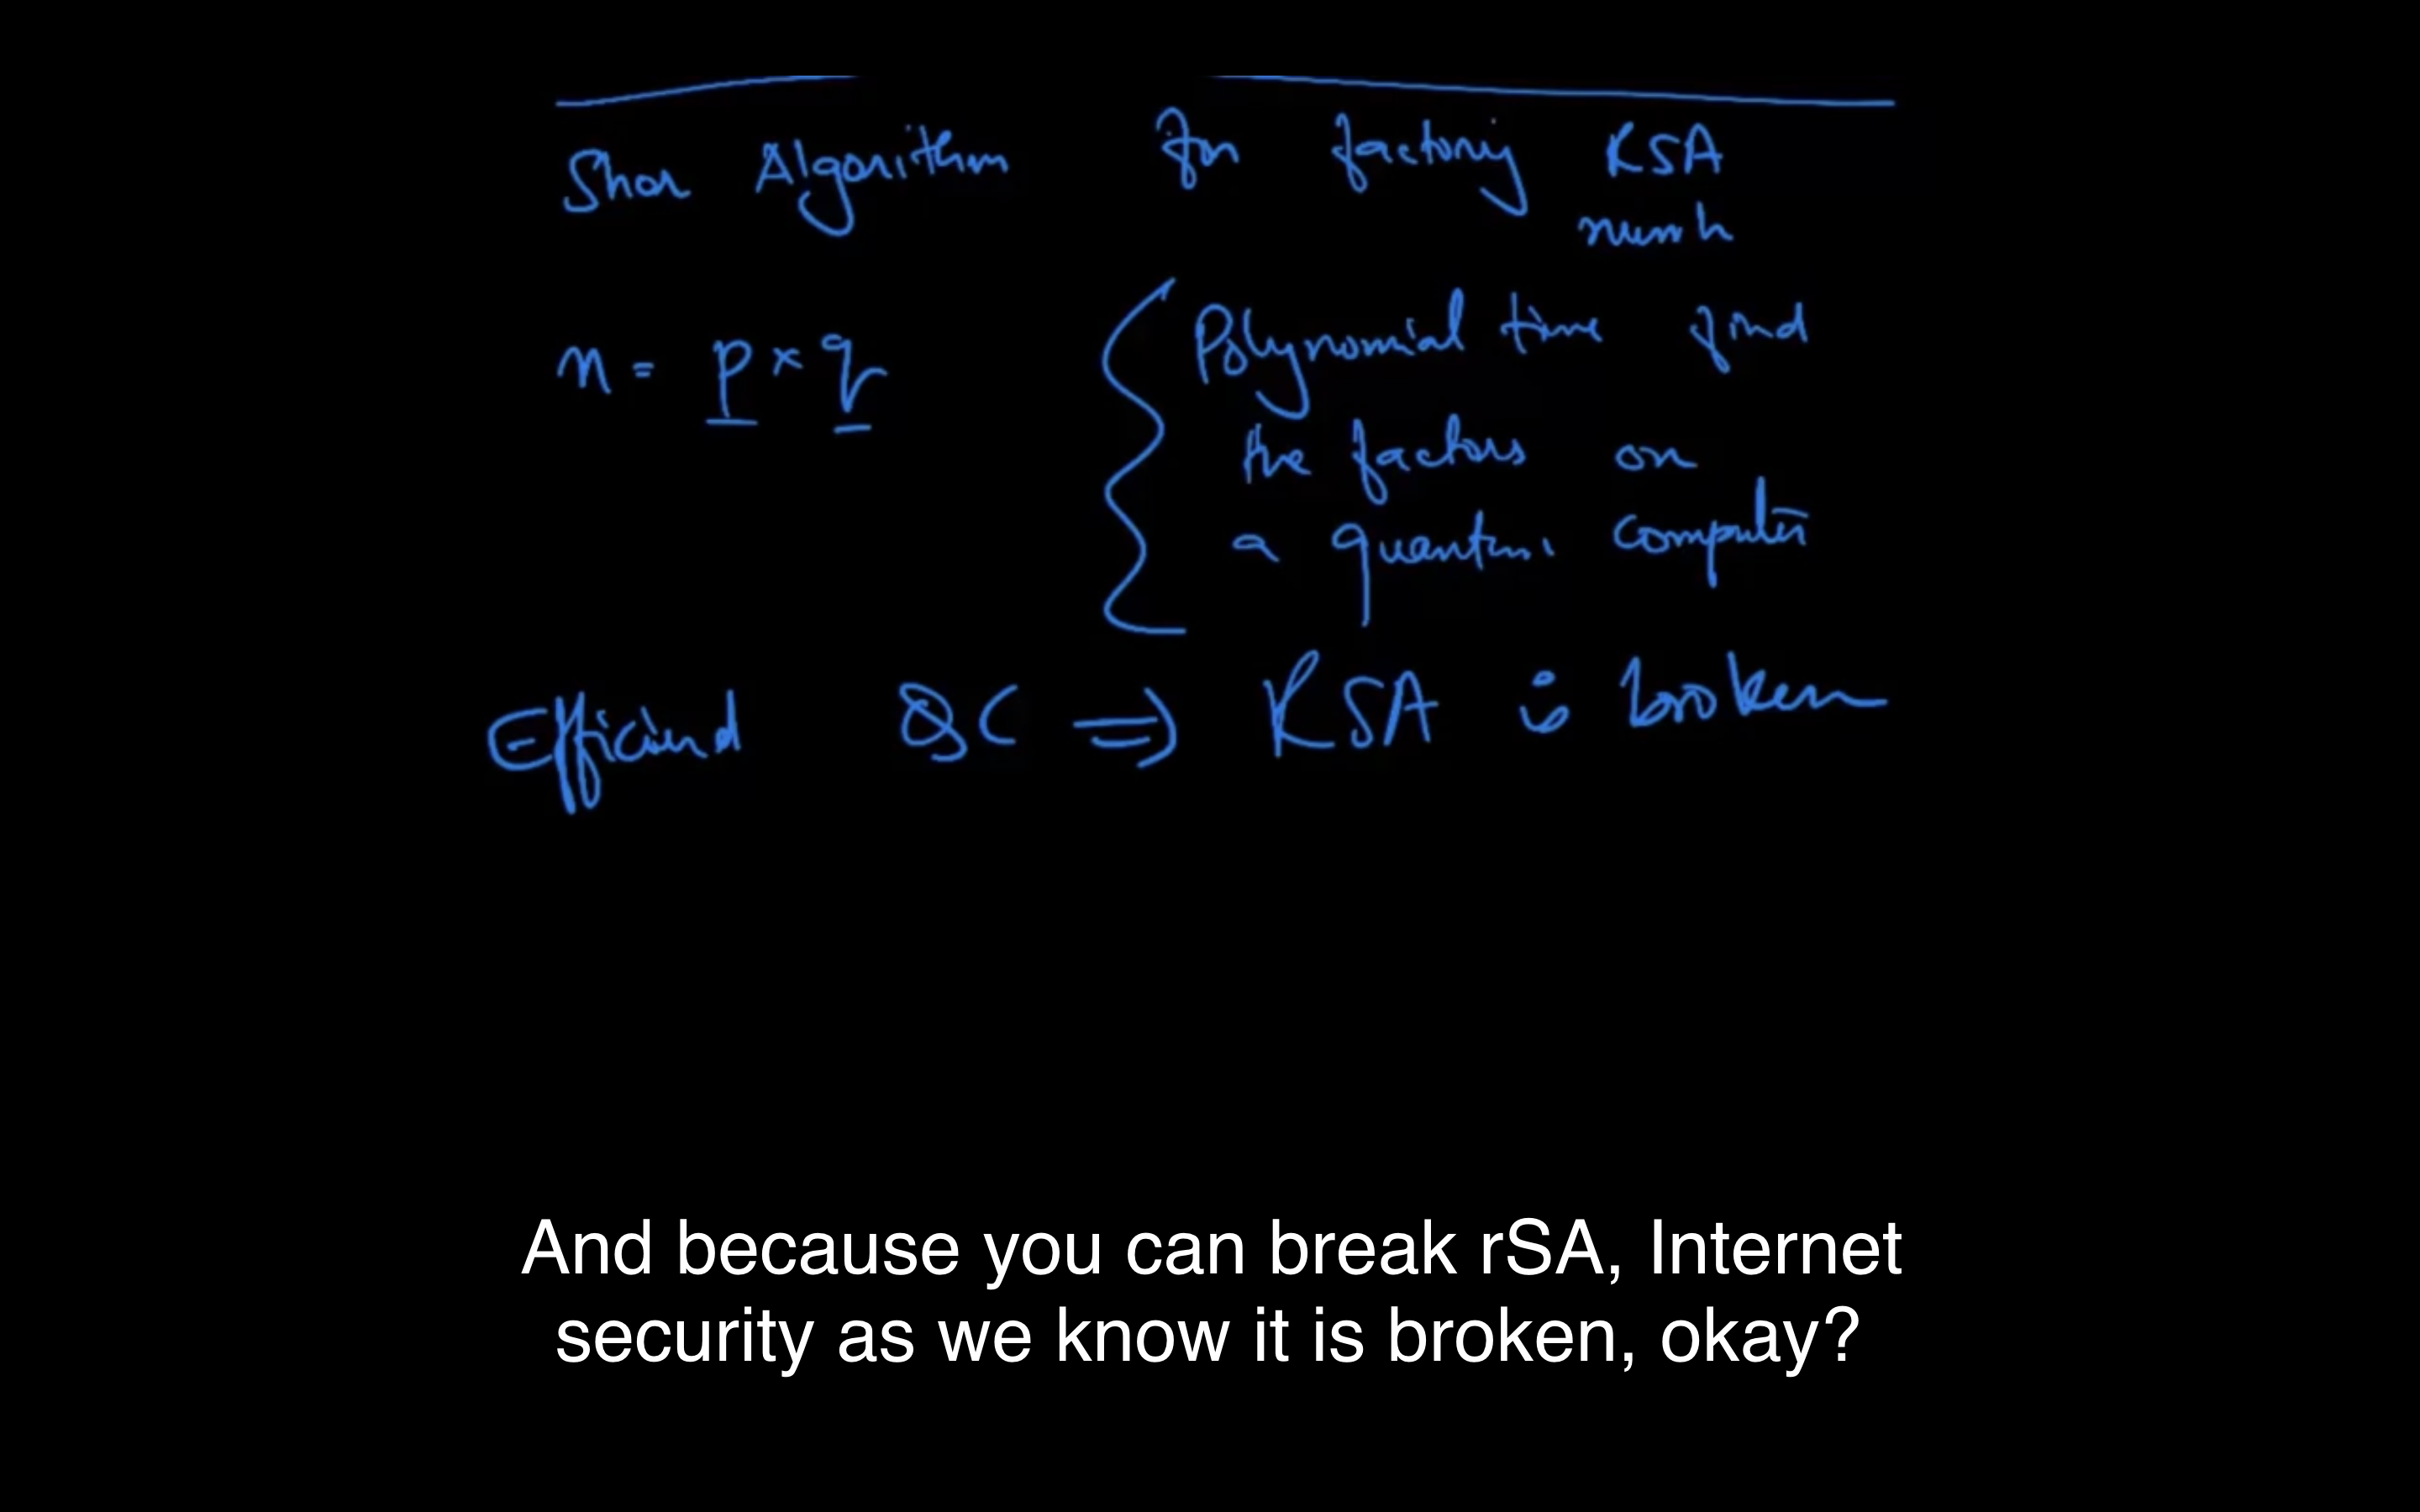 Shor Algorithm for factoring RSA
numb
n = p × q
Polynomial time find
the factors on
a quantum computer
Efficient QC ⇒ RSA is broken
And because you can break rSA, Internet
security as we know it is broken, okay?